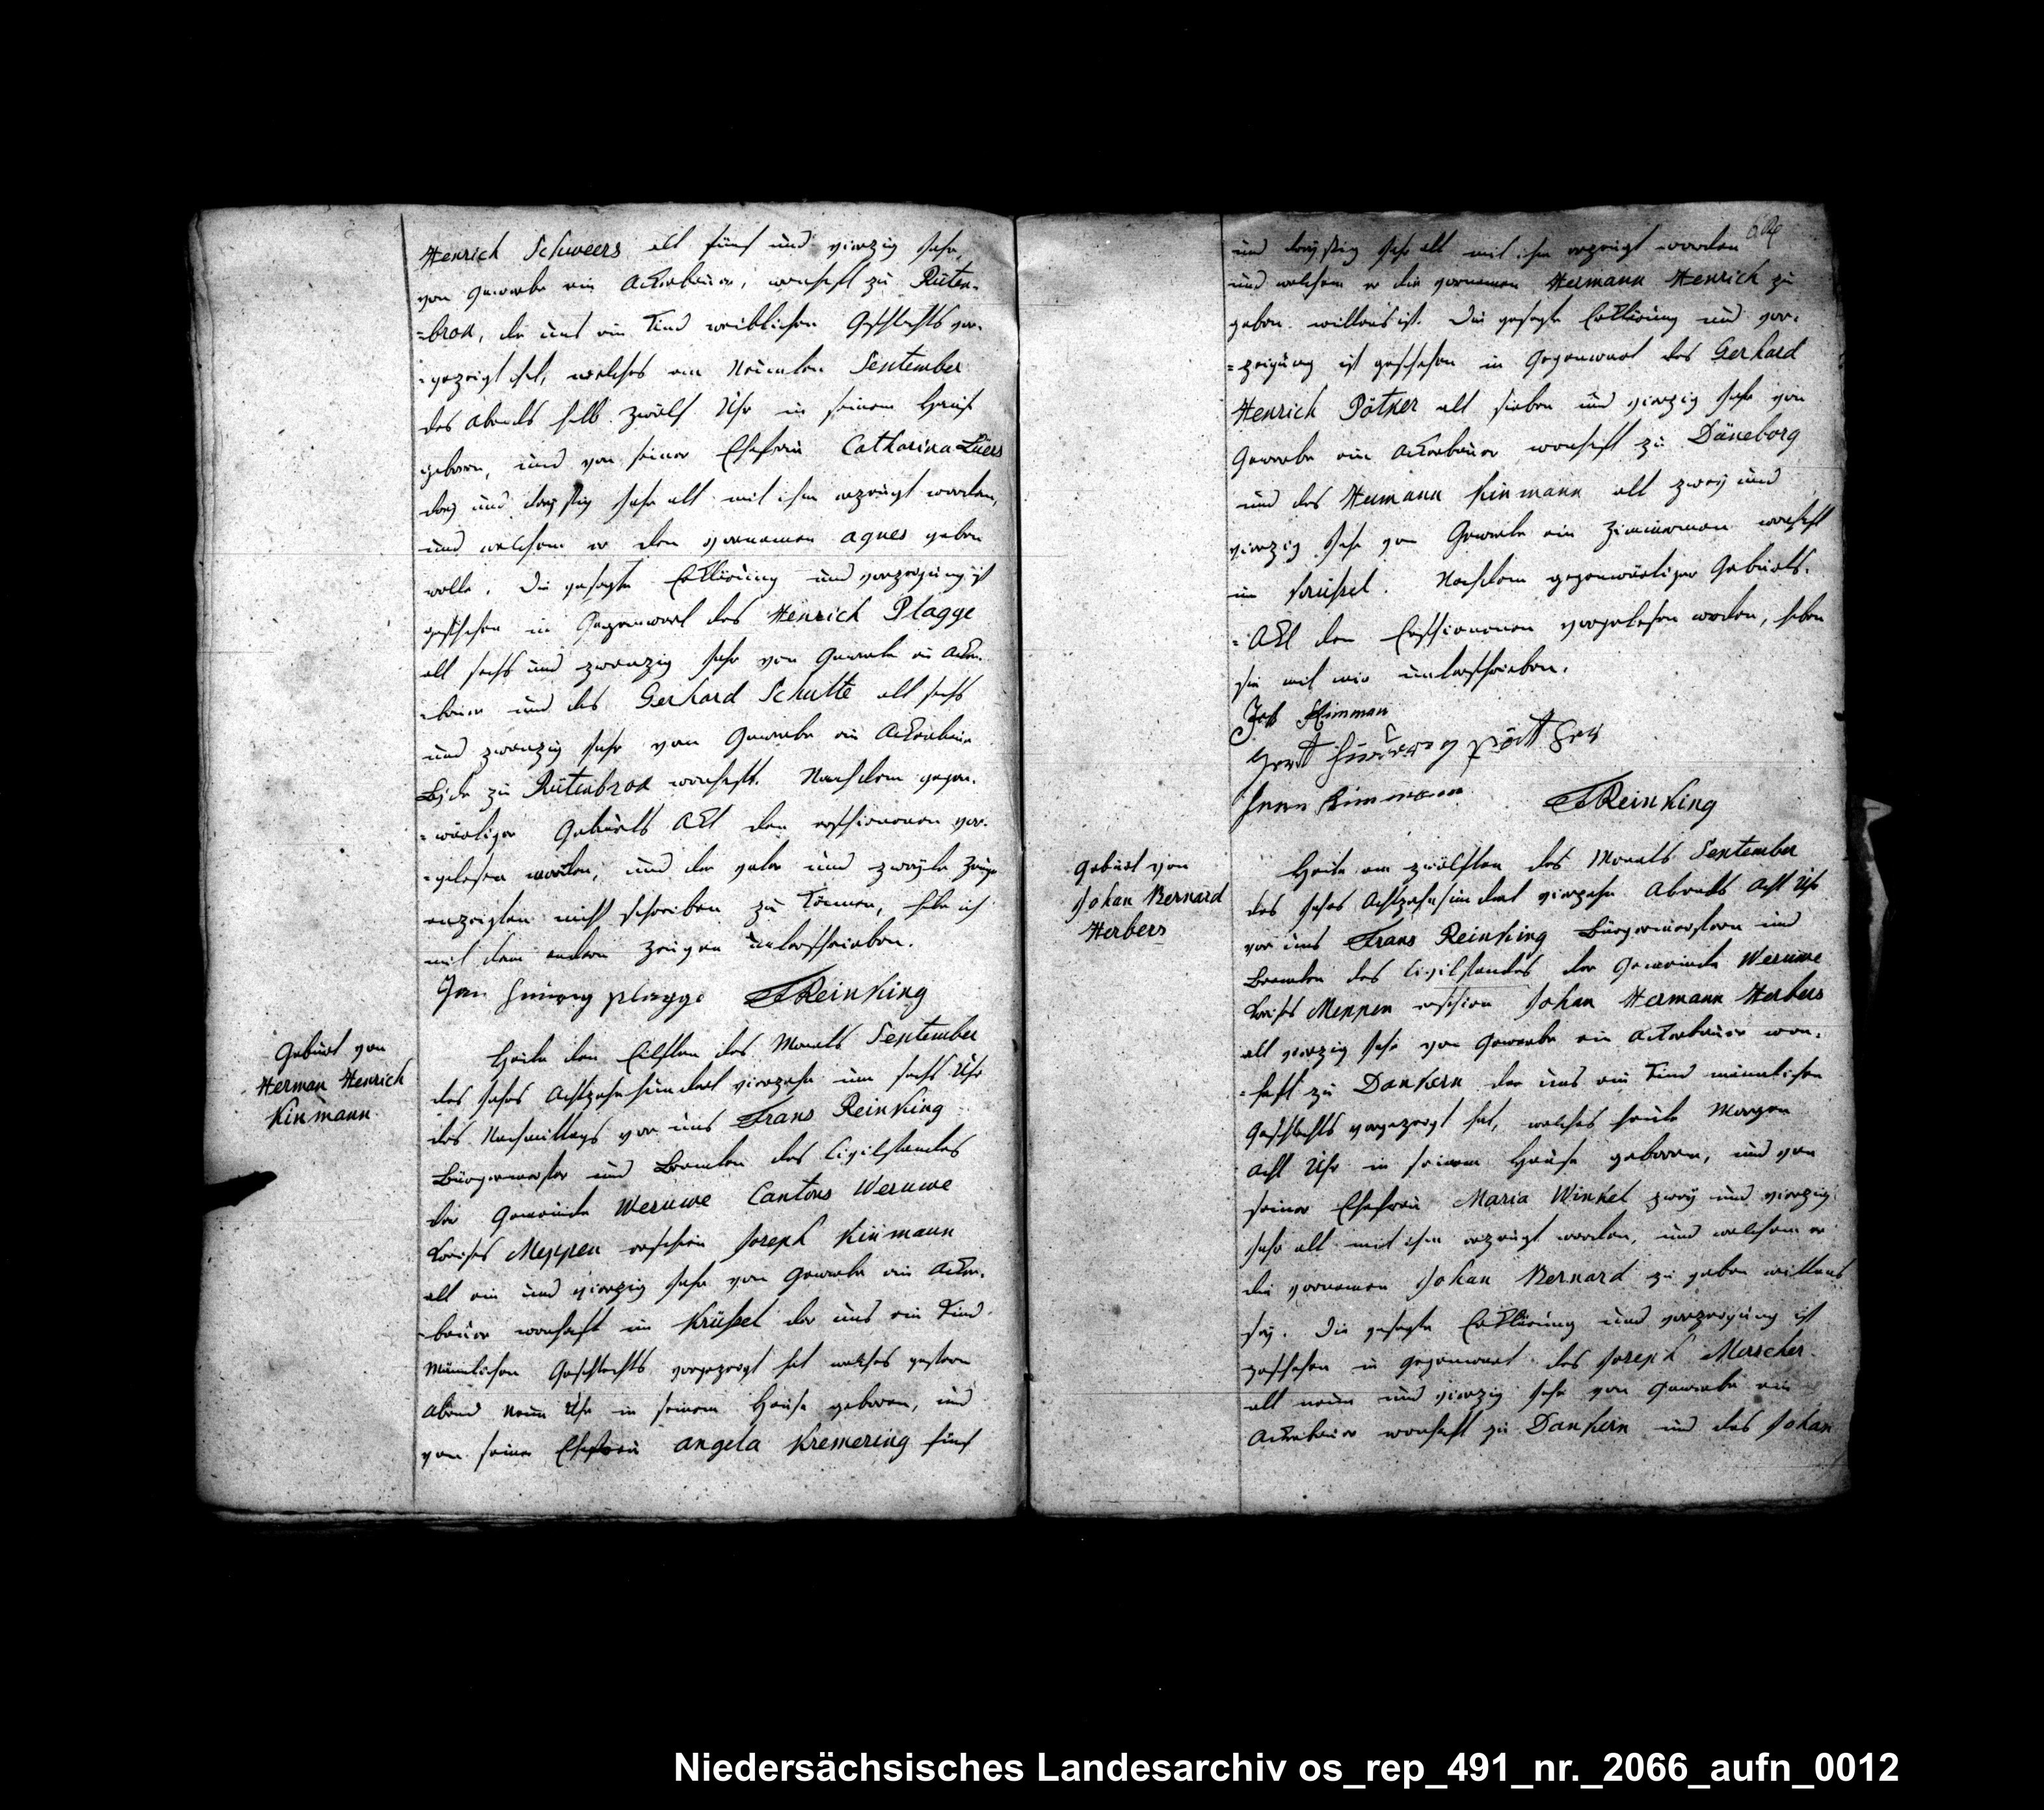 Henrich Schweers alt fünf und vierzig Jahr,
von Gewerbe ein Ackerbauer, wonhaft zu Rüten-
=brok, der uns ein Kind weiblichen Geschlechts vor-
=gezeigt hat, welches am Neunten September
des Abends halb zwölf Uhr in seinem Hause
geboren, und von seiner Ehefrau Catharina Lüers
drey und dreyßig Jahr alt mit ihm erzeugt worden,
und welchem er den vornamen Agnes geben
wolle. Die gesagte Erklärung und vorzeigung ist
geschehen in Gegenwart des Henrich Plagge
alt sechs und zwanzig Jahr von Gewerbe ein Acker-
=bauer und des Gerhard Schulte alt sechs
und zwanzig Jahr von Gewerbe ein Ackerbauer
Beyde zu Rütenbrok wonhaft. Nachdem gegen-
=wärtiger Geburts Akt den erschienenen vor-
=gelesen worden, und der vater und zweyte Zeuge
anzeigten nicht schreiben zu können, habe ich
mit dem andern Zeugen unterschrieben.
Jan Hinrig plagge FReinking
Geburt von
Herman Henrich
Kinmann
Heute den Eilften des Monats September
des Jahrs Achtzehnhundert vierzehn um sechs Uhr
des Nachmittags vor uns Frans Reinking
Bürgermeister und Beamten des Civilstandes
der Gemeinde Wesuwe Cantons Wesuwe
Kreises Meppen erschien Joseph Kinmann
alt ein und vierzig Jahr von Gewerbe ein Acker-
=bauer wonhaft im Krüssel der uns ein Kind
Männlichen Geschlechts vorgezeigt hat welches gestern
Abend neun Uhr in seinem Hause geboren, und
von seiner Ehefrau Angela Kremering fünf
und dreyßig Jahr alt mit ihm erzeugt worden
und welchem er die vornamen Hermann Henrich zu
geben willens ist. Die gesagte Erklärung und vor-
=zeigung ist geschehen in Gegenwart des Gerhard
Henrich Pötker alt sieben und vierzig Jahr von
Gewerbe ein Ackerbauer wonhaft zu Düneborg
und des Hermann Kinmann alt zwey und
vierzig Jahr von Gewerbe ein Zimmerman wonhaft
im Krüssel. Nachdem gegenwärtiger Geburts-
=Akt den Erschienenen vorgelesen worden, haben
sie mit mir unterschrieben.
Kinman
Kinmann FReinking
Geburt von
Johan Bernard
Herbers
Heute am zwölften des Monats September
des Jahrs Achtzehnhundert vierzehn Abends Acht Uhr
vor uns Frans Reinking Bürgermeistern und
Beamten des Civilstandes der Gemeinde Wesuwe
Kreises Meppen erschien Johan Hermann Herbers
alt vierzig Jahr von Gewerbe ein Ackerbauer won-
=haft zu Dankern der uns ein Kind männlichen
Geschlechts vorgezeigt hat, welches heute Morgen
Acht Uhr in seinem Hause geboren, und von
seiner Ehefrau Maria Winkel zwey und vierzig
Jahr alt mit ihm erzeugt worden, und welchem er
die vornamen Johan Bernard zu geben willens
sey. Die gesagte Erklärung und vorzeigung ist
geschehen in gegenwart des Joseph Merscher
alt neun und vierzig Jahr von Gewerbe ein
Ackerbauer wonhaft zu Dankern und des Johan
Niedersächsisches Landesarchiv os_rep_491_nr._2066_aufn_0012